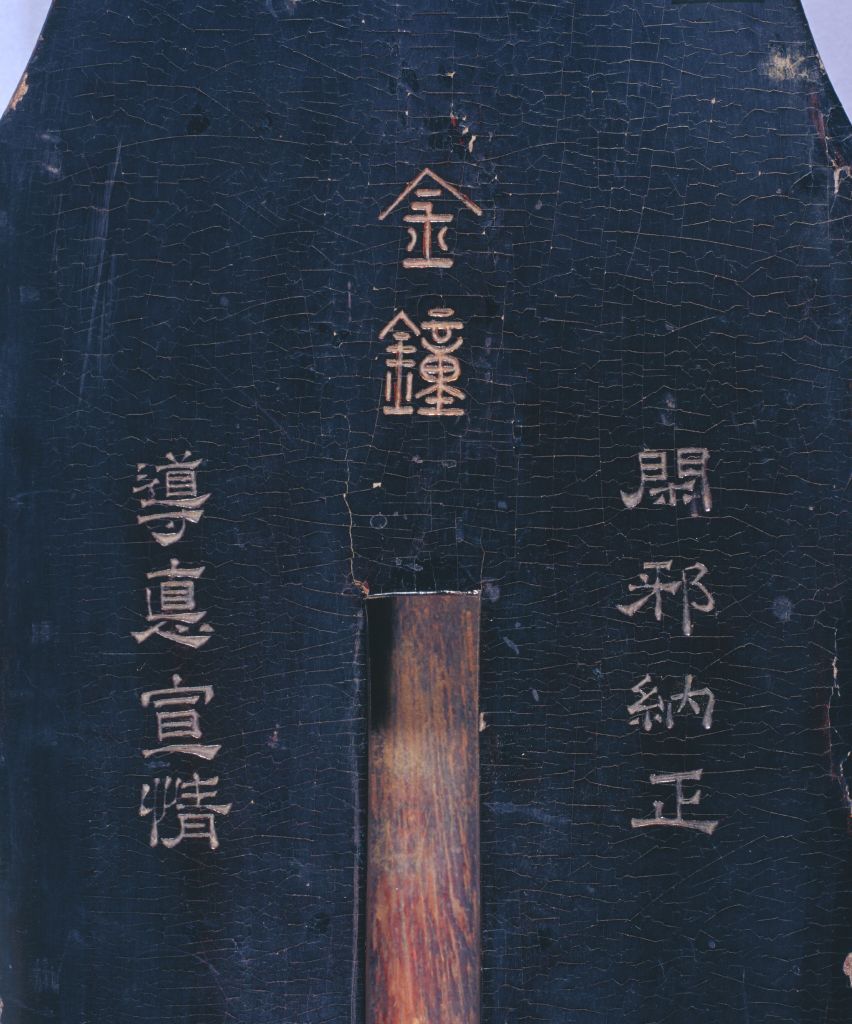 金鐘
閑邪納正
導悳宣情